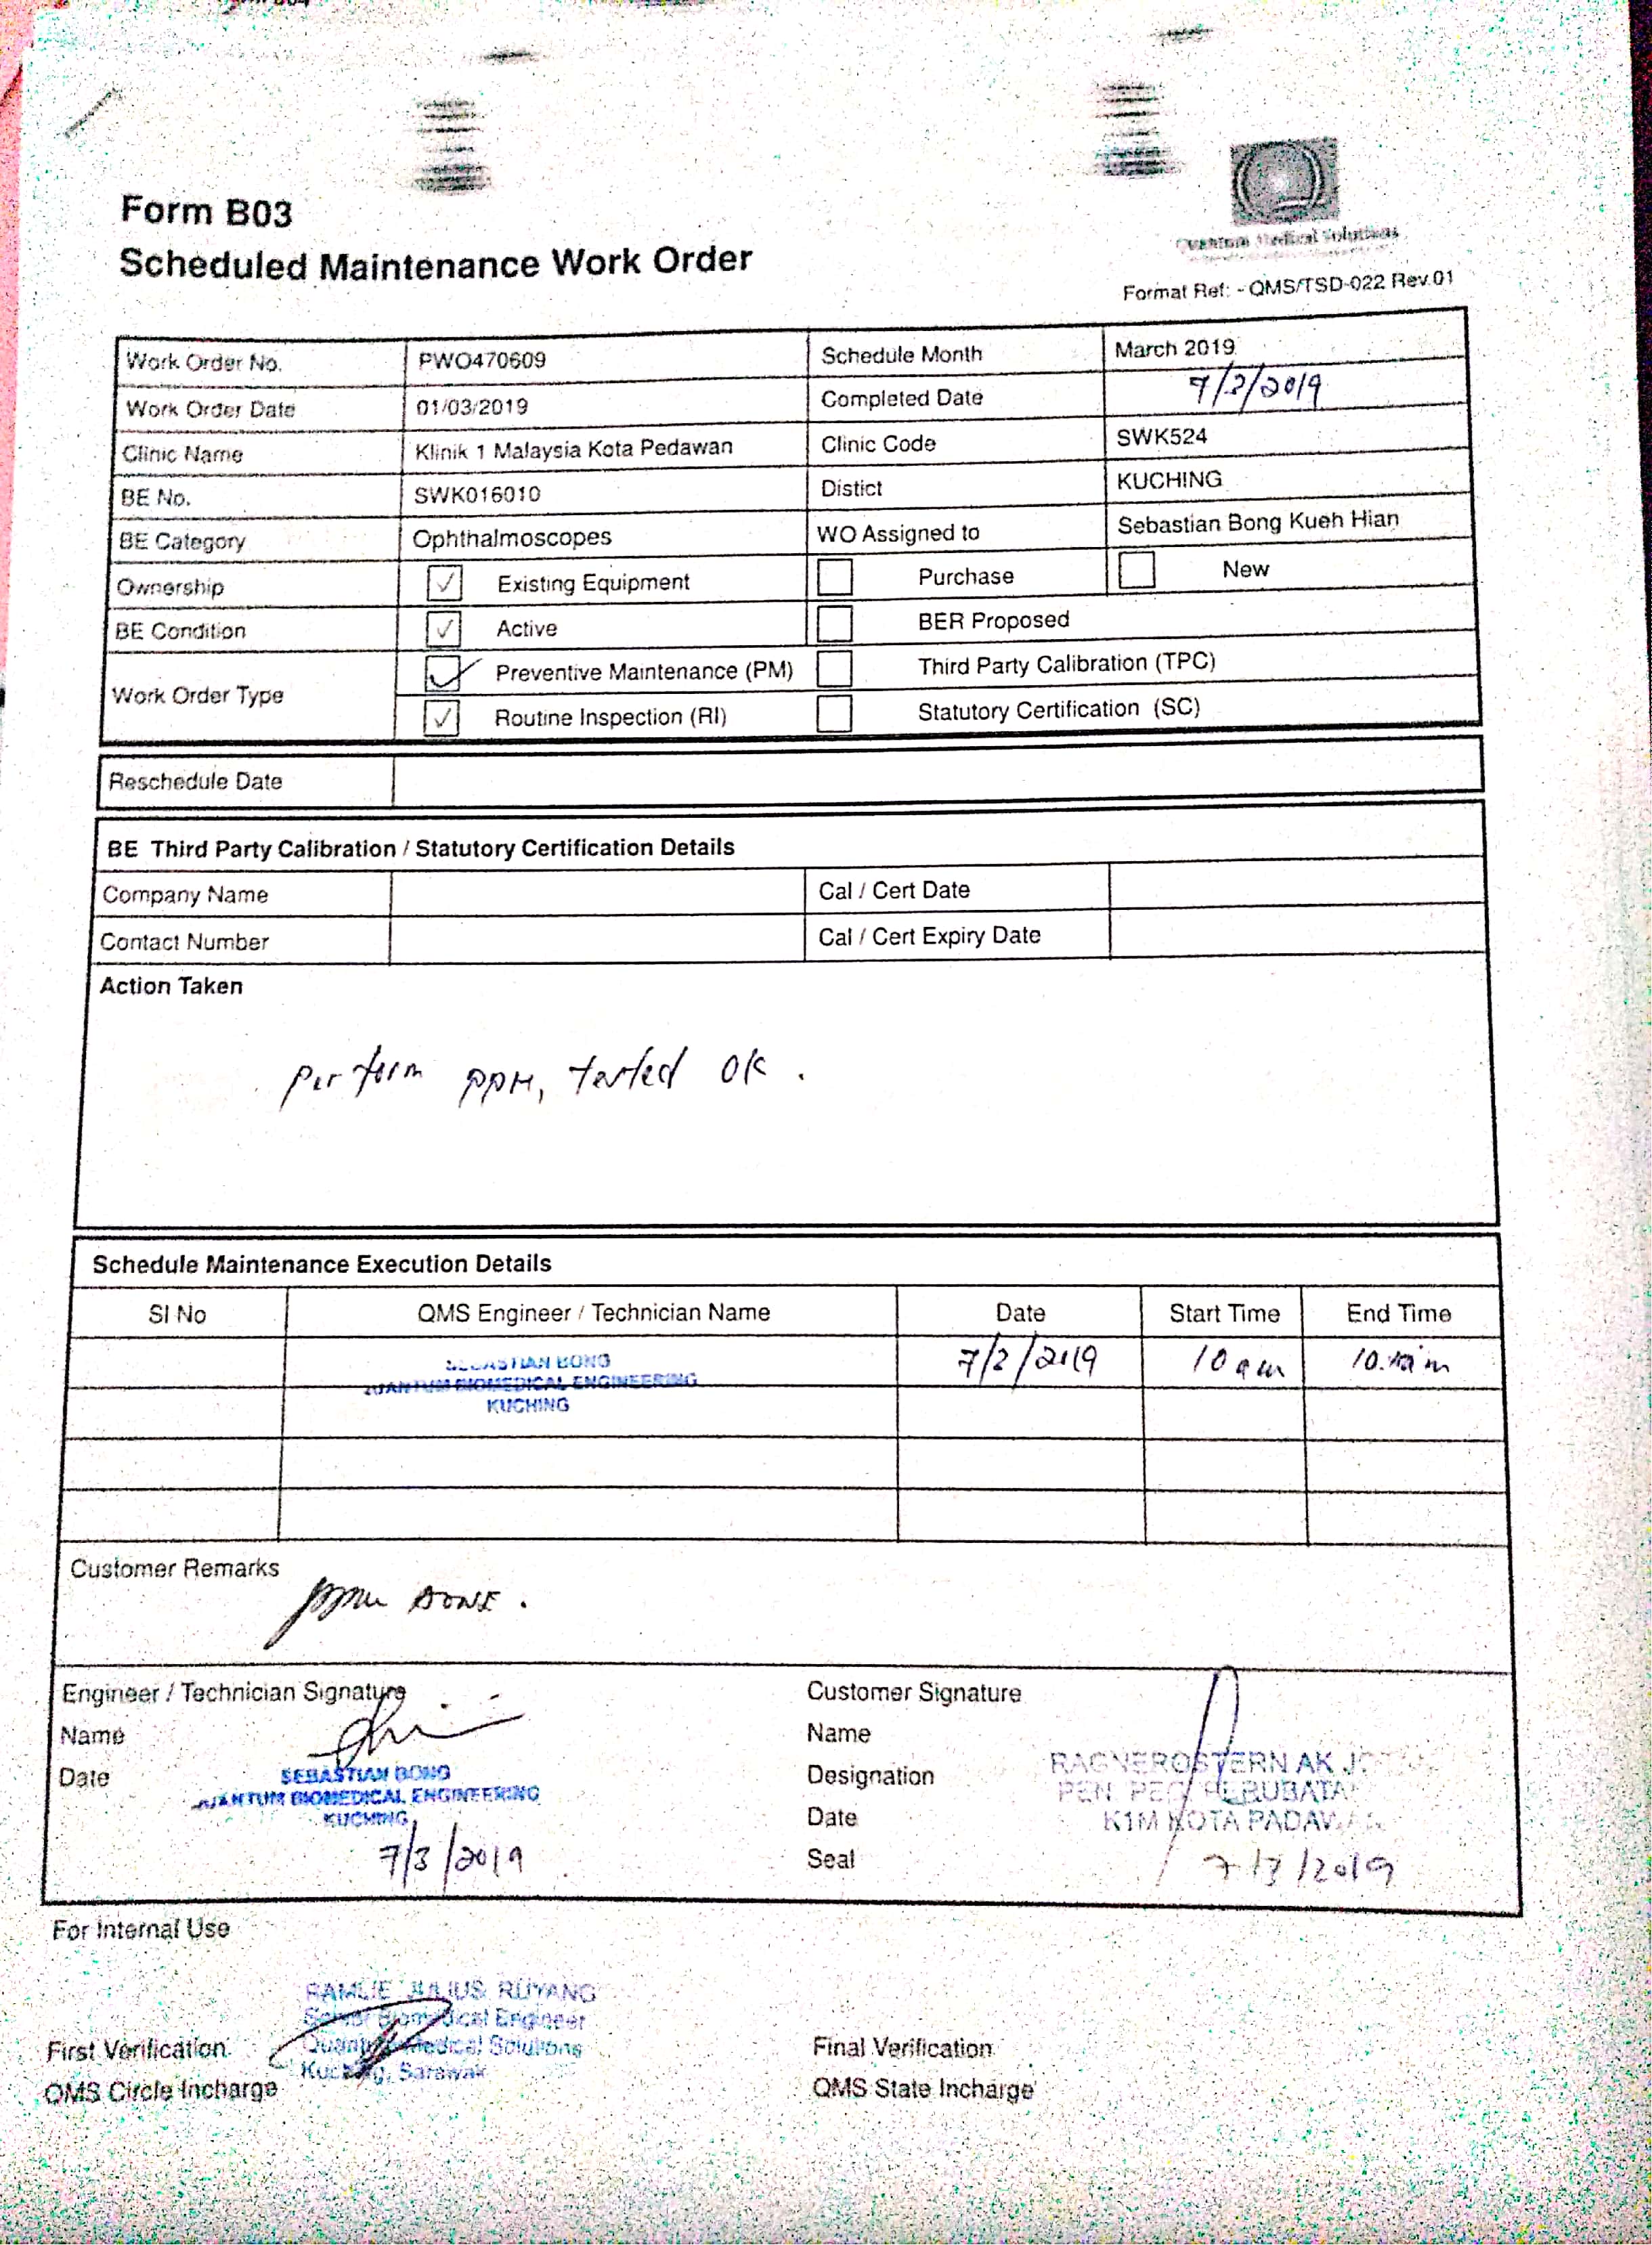 Form B03
Scheduled Maintenance Work Order
Quantum Medical Solutions
Format Ref: - QMS/TSD-022 Rev.01
Work Order No. PWO470609 Schedule Month March 2019
Work Order Date 01/03/2019 Completed Date 7/3/2019
Clinic Name Klinik 1 Malaysia Kota Pedawan Clinic Code SWK524
BE No. SWK016010 Distict KUCHING
BE Category Ophthalmoscopes WO Assigned to Sebastian Bong Kueh Hian
Ownership ✓ Existing Equipment Purchase New
BE Condition ✓ Active BER Proposed
Work Order Type ✓ Preventive Maintenance (PM) Third Party Calibration (TPC)
✓ Routine Inspection (RI) Statutory Certification (SC)
Reschedule Date
BE Third Party Calibration / Statutory Certification Details
Company Name Cal / Cert Date
Contact Number Cal / Cert Expiry Date
Action Taken
Perform PPM, tested OK.
Schedule Maintenance Execution Details
SI No QMS Engineer / Technician Name Date Start Time End Time
SEBASTIAN BONG 7/2/2019 10 am
QUANTUM BIOMEDICAL ENGINEERING
KUCHING
Customer Remarks
ppm DONE.
Engineer / Technician Signature Customer Signature
Name Name
Date Designation
SEBASTIAN BONG RAGNEROSTERN AK
QUANTUM BIOMEDICAL ENGINEERING PEN. PEG. PERUBATAN
KUCHING Date K1M KOTA PADAWAN
7/3/2019 Seal 7/3/2019
For Internal Use
RAMLIE JULIUS RUYANG
Senior Biomedical Engineer
First Verification Quantum Medical Solutions Final Verification
Kuching, Sarawak
QMS Circle Incharge QMS State Incharge